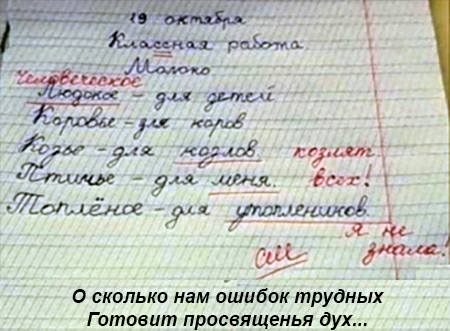 19 октября
Классная работа.
Молоко
Человеческое
Людское - для детей
Коровье - для коров
Козье - для козлов. козлят.
Птичье - для меня. всех!
Топлёное - для утоплеников.
Я не
знала!
См
О сколько нам ошибок трудных
Готовит просвященья дух...